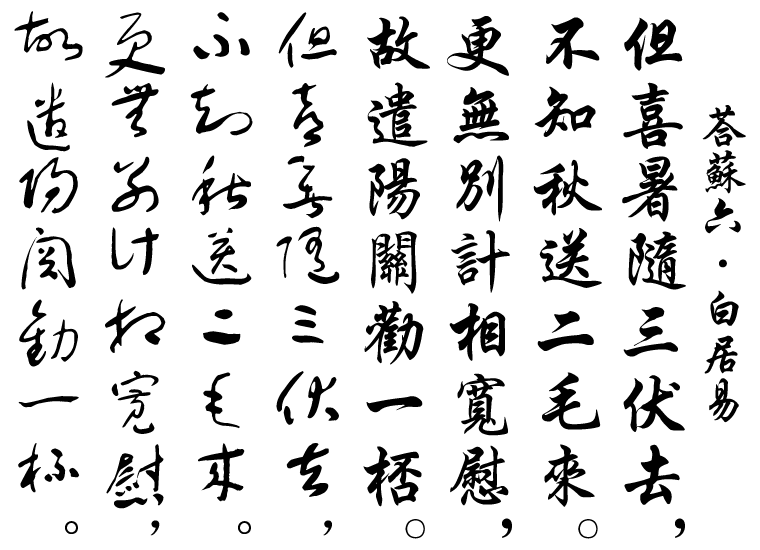 荅蘇六・白居易
但喜暑隨三伏去，
不知秋送二毛來。
更無別計相寬慰，
故遣陽關勸一桮。
但喜暑隨三伏去，
不知秋送二毛來。
更無別計相寬慰，
故遣陽關勸一杯。